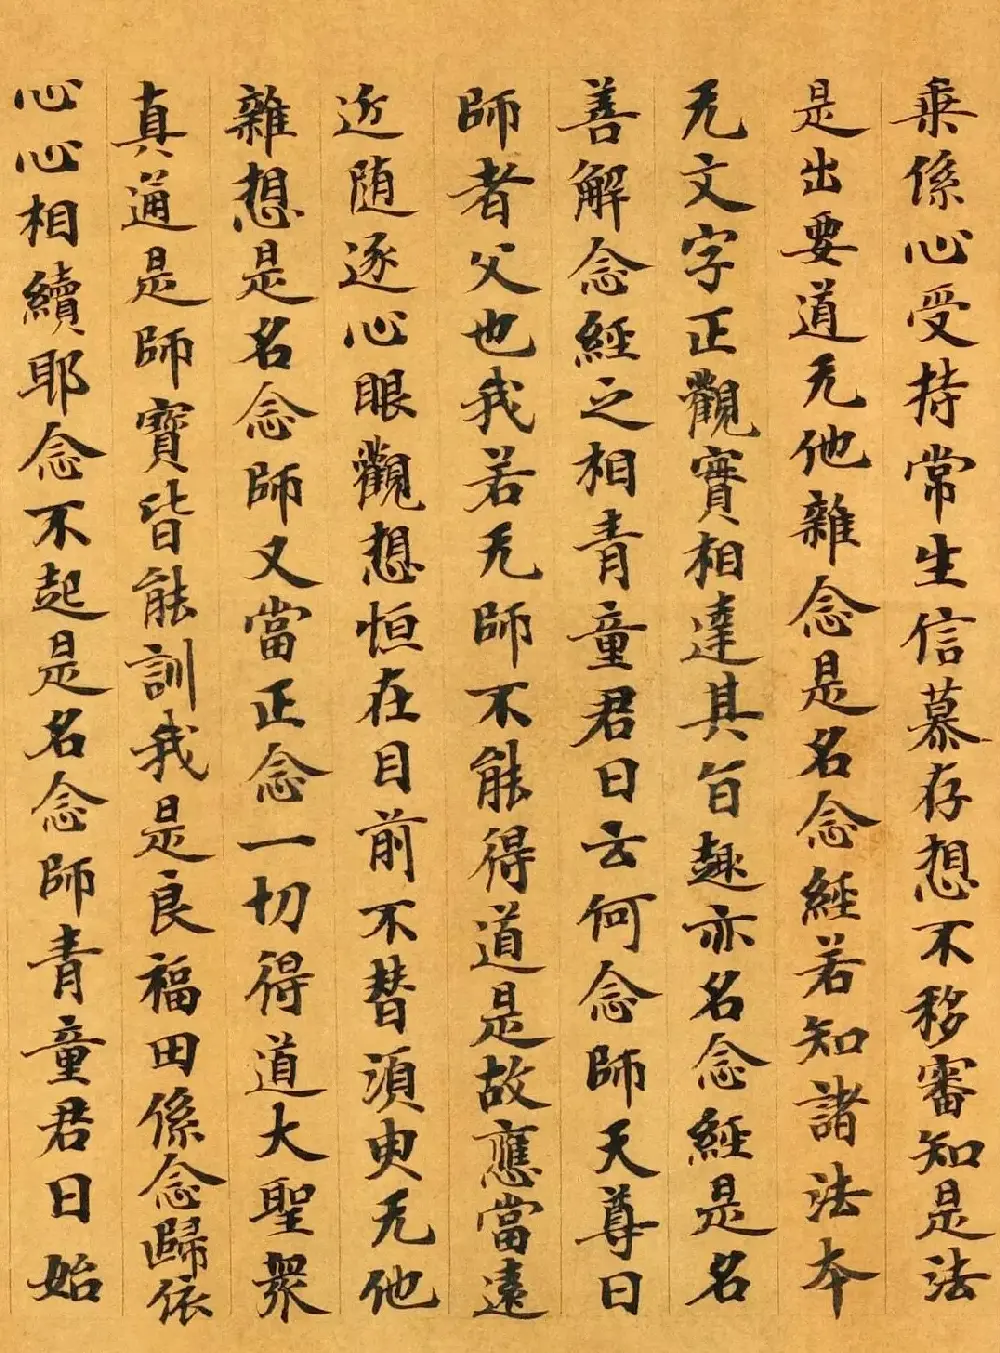 乗係心受持常生信慕存想不移審知是法
是出要道无他雜念是名念經若知諸法本
无文字正觀實相達其旨趣亦名念經是名
善解念經之相青童君曰云何念師天尊曰
師者父也我若无師不能得道是故應當遠
近随逐心眼觀想恒在目前不替湏臾无他
雜想是名念師又當正念一切得道大聖衆
真通是師寳皆能訓我是良福田係念歸依
心心相續耶念不起是名念師青童君曰始